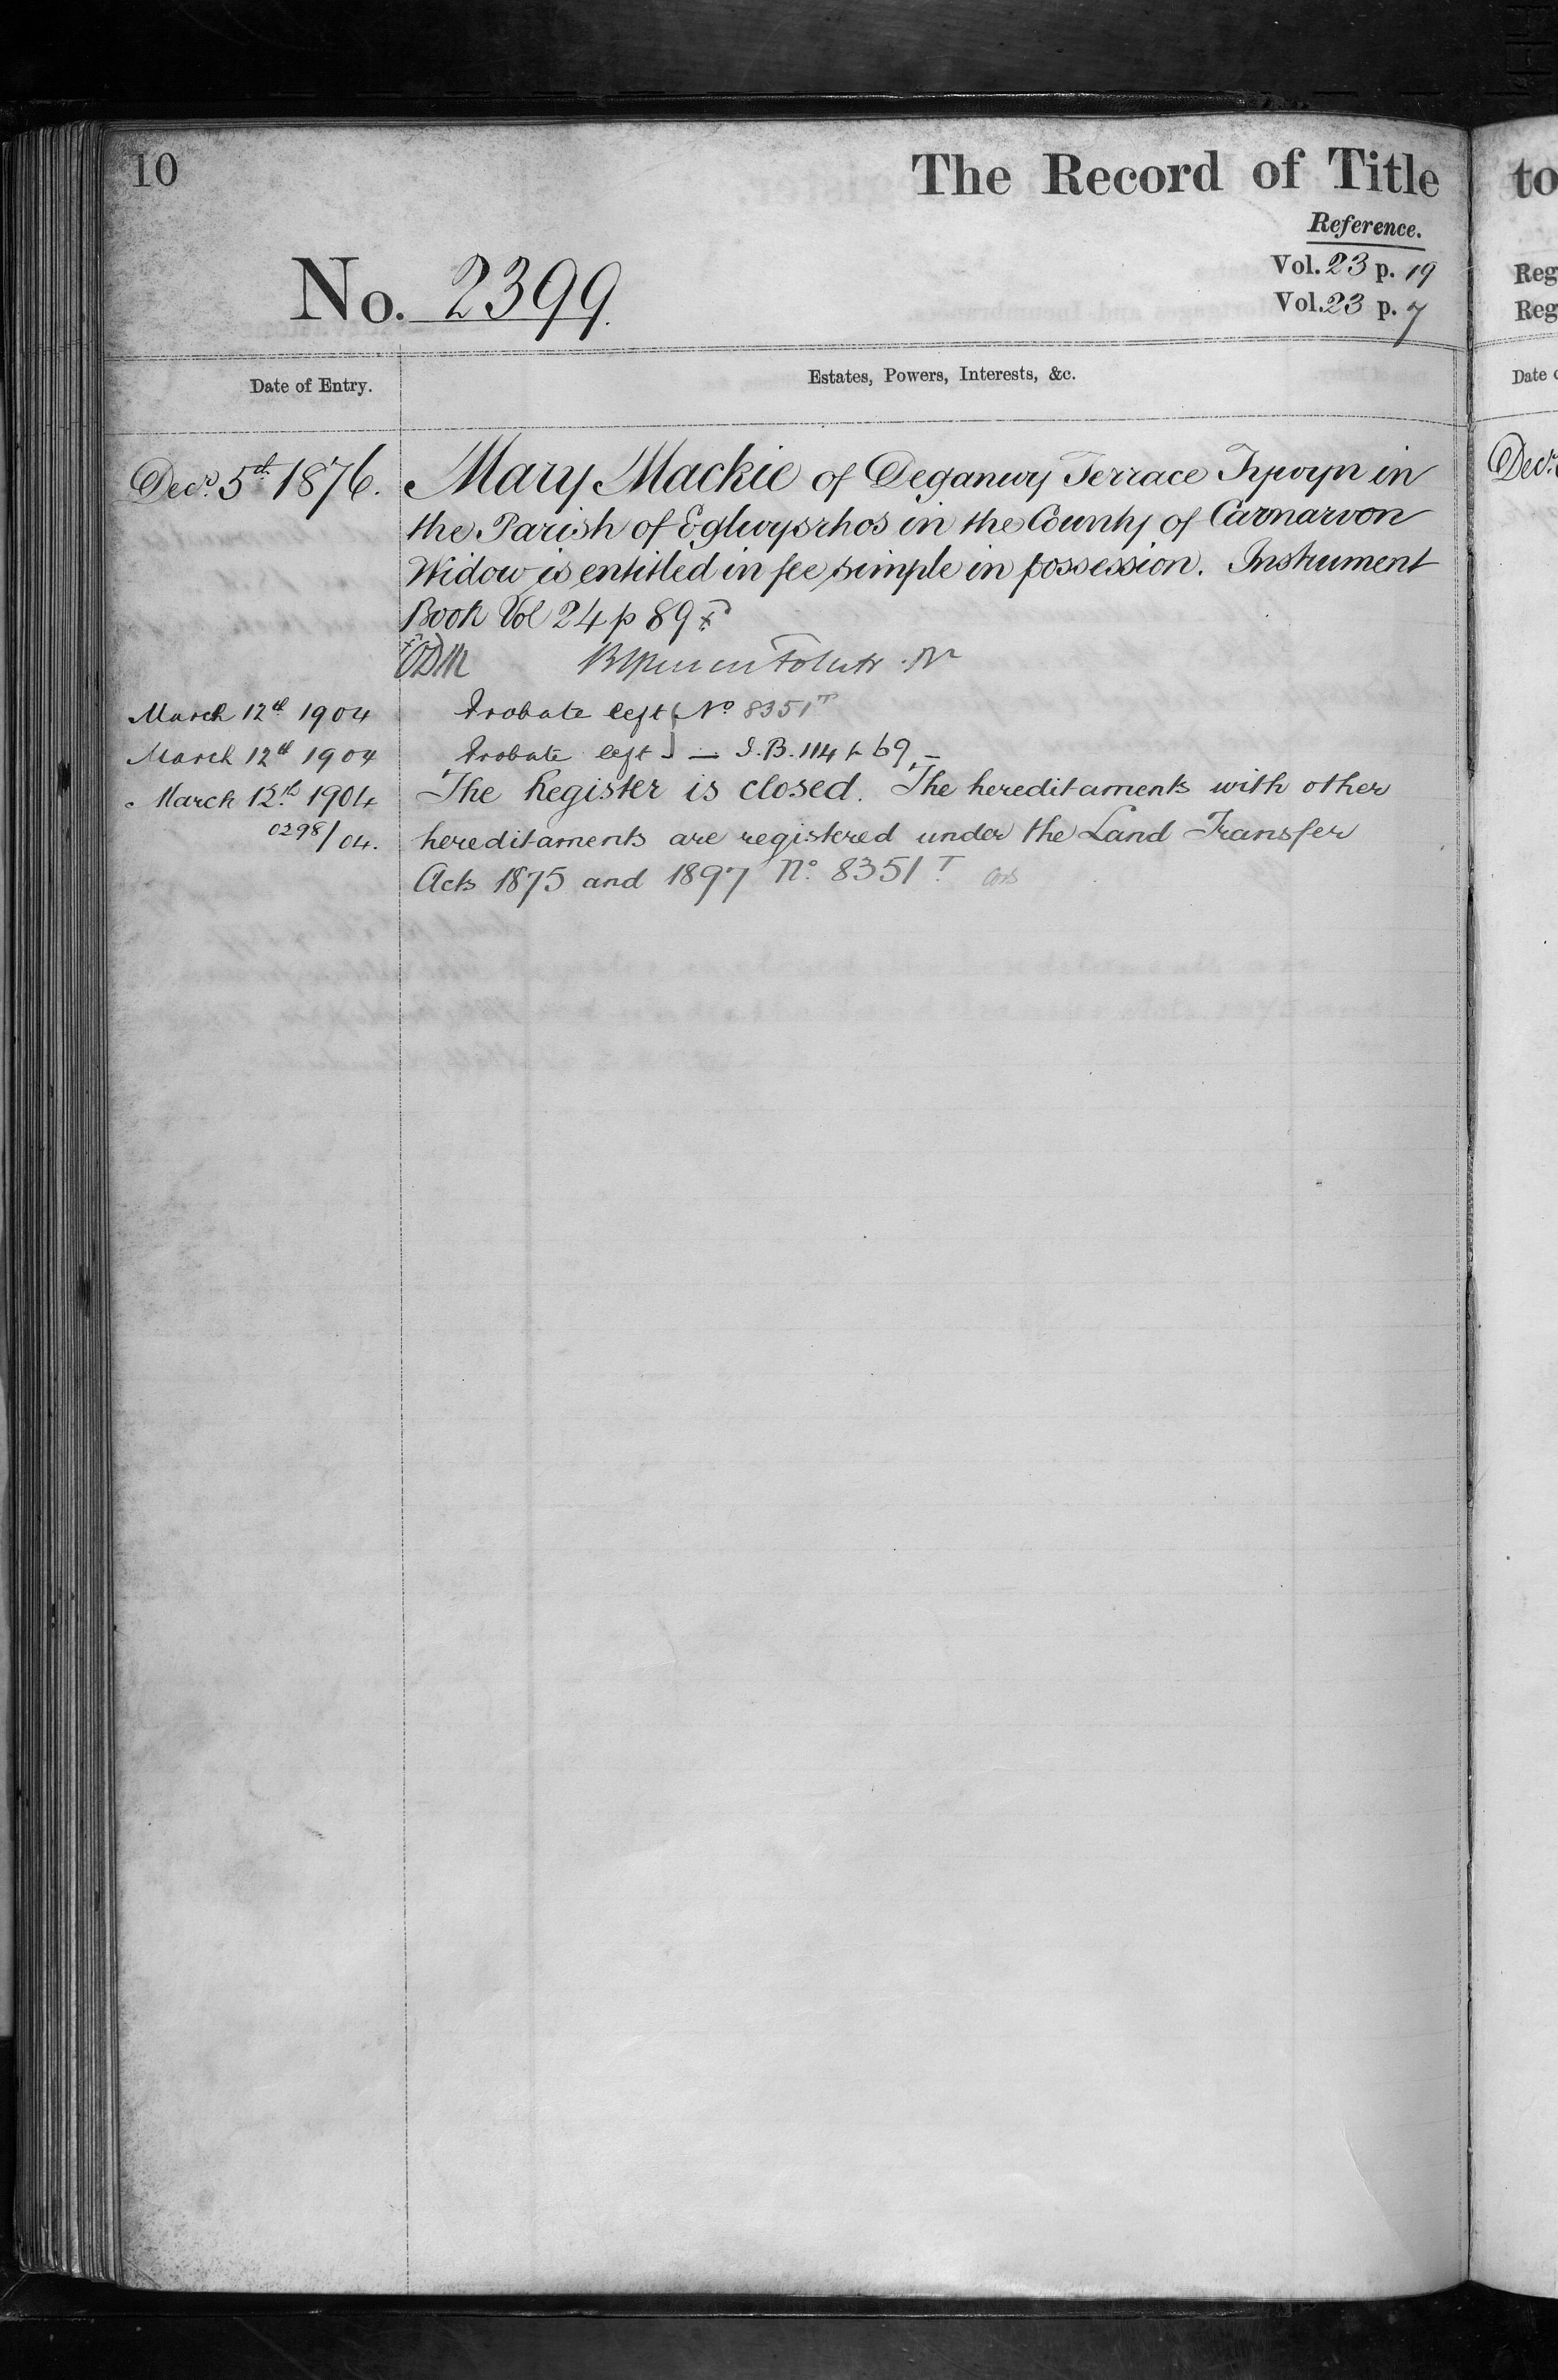 10
The Record of Title
Reference.
Vol. 23 p. 19
Vol. 23 p. 7
No. 2399.
Date of Entry.
Estates, Powers, Interests, &c.
Decr. 5th 1876.
Mary Mackie of Deganwy Terrace Tywyn in
the Parish of Eglwysrhos in the County of Carnarvon
Widow is entitled in fee simple in possession. Instrument
Book Vol 24 p 89
March 12th 1904 Probate left No 8351T
March 12th 1904 Probate left — I.B. 114 69 —
March 12th 1904 The Register is closed. The hereditaments with other
0298/04. hereditaments are registered under the Land Transfer
Acts 1875 and 1897 No. 8351T.
to
Reg
Reg
Date
Decr.